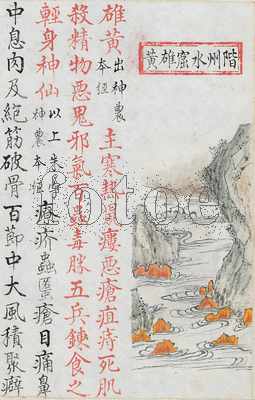 階州水窟雄黃
雄黃出神農本經主寒熱鼠瘻惡瘡疽痔死肌
殺精物惡鬼邪氣百蟲毒勝五兵鍊食之
輕身神仙以上朱字神農本經療疥蟲䘌瘡目痛鼻
中息肉及絕筋破骨百節中大風積聚癖
fotoe